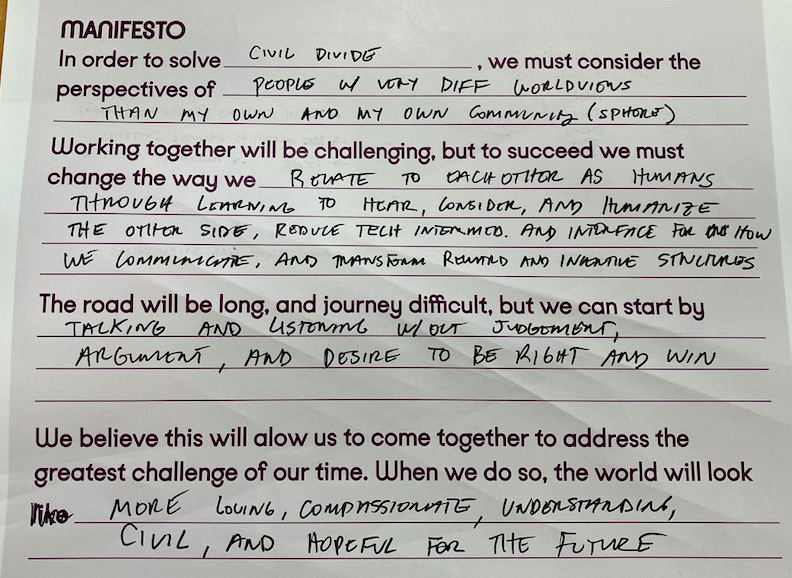 MANIFESTO
In order to solve CIVIL DIVIDE, we must consider the
perspectives of PEOPLE W/ VERY DIFF WORLDVIEWS
THAN MY OWN AND MY OWN COMMUNITY (SPHERE)
Working together will be challenging, but to succeed we must
change the way we RELATE TO EACH OTHER AS HUMANS
THROUGH LEARNING TO HEAR, CONSIDER, AND HUMANIZE
THE OTHER SIDE, REDUCE TECH INTERMED. AND INTERFACE FOR HOW
WE COMMUNICATE, AND TRANSFORM REWARD AND INCENTIVE STRUCTURES
The road will be long, and journey difficult, but we can start by
TALKING AND LISTENING W/OUT JUDGEMENT,
ARGUMENT, AND DESIRE TO BE RIGHT AND WIN
We believe this will alow us to come together to address the
greatest challenge of our time. When we do so, the world will look
like MORE LOVING, COMPASSIONATE, UNDERSTANDING,
CIVIL, AND HOPEFUL FOR THE FUTURE